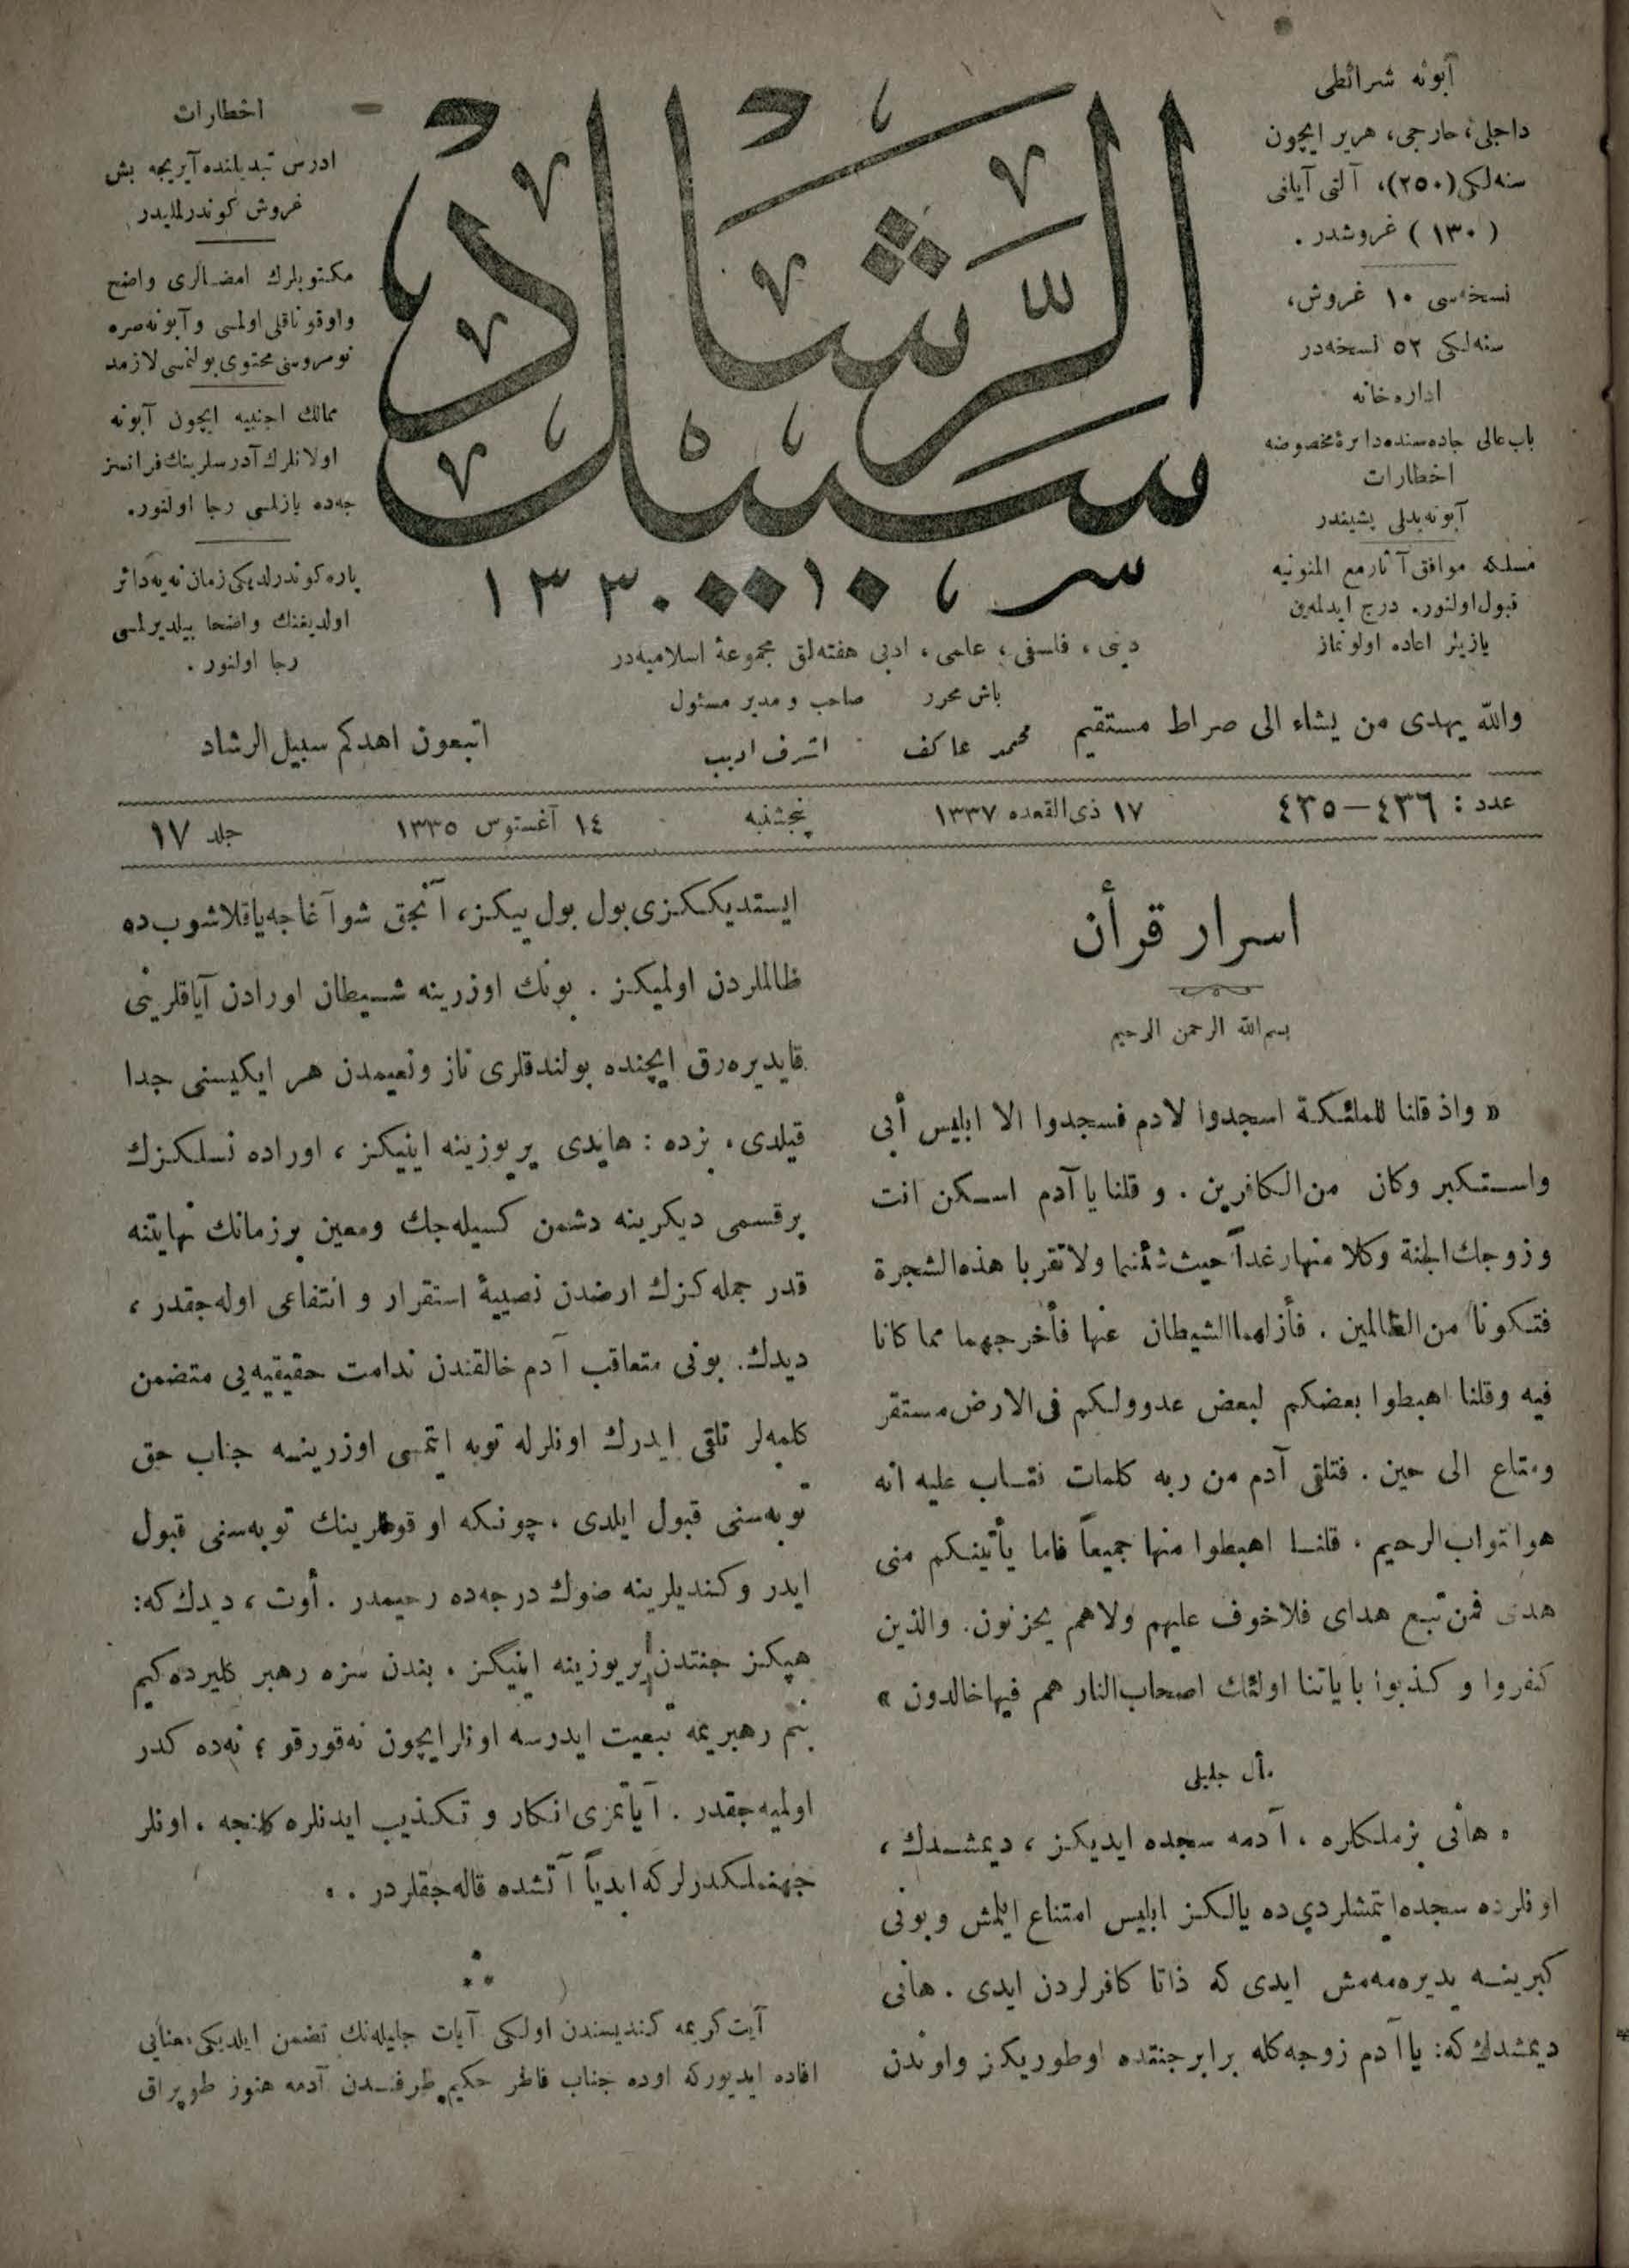 آبونه شرائطی
داخلی، خارجی، هریر ایچون
سنه‌لکی (۲۵۰)، آلتی آیلغی
(۱۳۰) غروشدر .
نسخه‌سی ۱۰ غروش،
سنه‌لکی ۵۲ نسخه‌در
اداره‌خانه
باب عالی جاده‌سنده دائرهٔ مخصوصه
اخطارات
آبونه بدلی پشیندر
مسلکه موافق آثار مع الممنونیه
قبول اولنور. درج ایدلمه‌ین
یازیلر اعاده اولونماز
سبیل الرشاد
۱۳۳۰
اخطارات
ادرس تبدیلنده آیریجه بش
غروش کوندرلملیدر
مکتوبلرك امضالری واضح
واوقوناقلی اولمسی و آبونه صره
نومروسنی محتوی بولنمسی لازمدر
ممالك اجنبیه ایچون آبونه
اولانلرك آدرسلرینك فرانسز
جه‌ده یازلمسی رجا اولنور.
پاره کوندرلدیکی زمان نه‌یه دائر
اولدیغنك واضحا بیلدیرلمسی
رجا اولنور .
دینی، فلسفی، علمی، ادبی هفته‌لق مجموعهٔ اسلامیه‌در
باش محرر صاحب و مدیر مسئول
والله یهدی من یشاء الی صراط مستقیم محمد عاکف اشرف ادیب اتبعون اهدکم سبیل الرشاد
عدد : ٤٣٦—٤٣٥ ۱۷ ذی القعده ۱۳۳۷ پنجشنبه ۱٤ آغستوس ۱۳۳۵ جلد ۱۷
اسرار قرآن
بسم الله الرحمن الرحیم
« واذ قلنا للملئكة اسجدوا لادم فسجدوا الا ابلیس أبی
واستکبر وکان من الکافرین . و قلنا یا آدم اسکن انت
وزوجك الجنة وکلا منها رغداً حیث شئتما ولا تقربا هذه الشجرة
فتکونا من الظالمین . فأزلهما الشیطان عنها فأخرجهما مما کانا
فیه وقلنا اهبطوا بعضکم لبعض عدو ولکم فی الارض مستقر
ومتاع الی حین . فتلقی آدم من ربه کلمات فتاب علیه انه
هوا تواب الرحیم . قلنا اهبطوا منها جمیعاً فاما یأتینکم منی
هدی فمن تبع هدای فلاخوف علیهم ولاهم یحزنون. والذین
کفروا و کذبوا بایاتنا اولئك اصحاب النار هم فیها خالدون »
مأل جلیلی
« هانی بز ملکلره ، آدمه سجده ایدیکز ، دیمشدك ،
اونلرده سجده ایتمشلردی ده یالکز ابلیس امتناع ایلمش و بونی
کبرینه یدیره‌مه‌مش ایدی که ذاتا کافرلردن ایدی . هانی
دیمشدك که: یا آدم زوجه‌کله برابر جنتده اوطوریکز واوندن
ایستدیککزی بول بول ییکز، آنجق شو آغاجه یاقلاشوب‌ده
ظالملردن اولمیکز . بونك اوزرینه شیطان اورادن آیاقلرینی
قایدیره‌رق ایچنده بولندقلری ناز ونعیمدن هر ایکیسنی جدا
قیلدی. بزده : هایدی یر یوزینه اینیکز ، اوراده نسلکزك
بر قسمی دیکرینه دشمن کسیله‌جك ومعین بر زمانك نهایتنه
قدر جمله‌کزك ارضدن نصیبهٔ استقرار و انتفاعی اوله‌جقدر ،
دیدك. بونی متعاقب آدم خالقندن ندامت حقیقیه‌یی متضمن
کلمه‌لر تلقی ایدرك اونلرله توبه ایتمسی اوزرینه جناب حق
توبه‌سنی قبول ایلدی ، چونکه او قوللرینك توبه‌سنی قبول
ایدر وکندیلرینه صوك درجه‌ده رحیمدر . أوت ، دیدك که:
هپکز جنتدن یر یوزینه اینیگز . بندن سزه رهبر کلیرده کیم
بنم رهبریمه تبعیت ایدرسه اونلر ایچون نه قورقو ؛ نه‌ده کدر
اولمیه‌جقدر . آیاتمزی انکار و تکذیب ایدنلره کلنجه ، اونلر
جهنملکدرلر که ابدیاً آتشده قاله‌جقلردر . »
آیت کریمه کندیسندن اولکی آیات جلیله‌نك تضمن ایلدیکی معنایی
افاده ایدیورکه اوده جناب فاطر حکیم طرفندن آدمه هنوز طوپراق